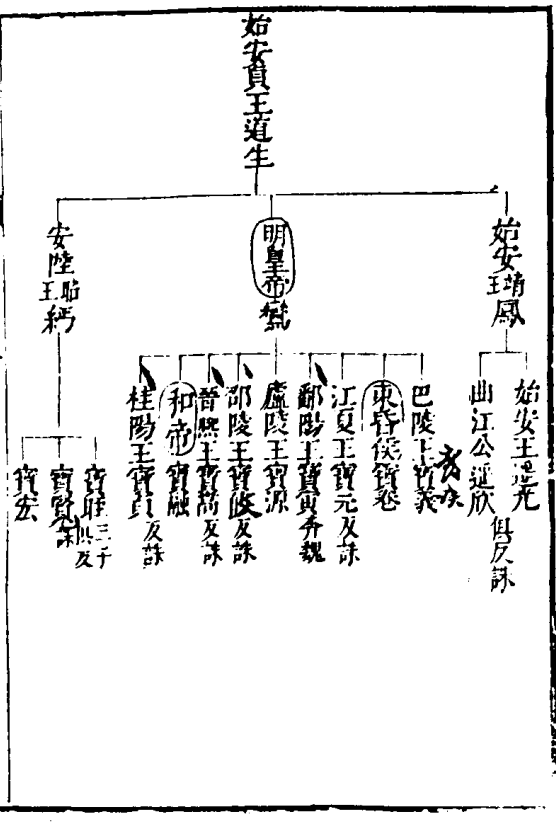 始安貞王道生
始安靖王鳳
始安王遥光
曲江公遥欣
俱反誅
明皇帝鸞
巴陵王寶義
東昏侯寶卷
江夏王寶元反誅
鄱陽王寶寅奔魏
廬陵王寶源
邵陵王寶攸反誅
晉熙王寶嵩反誅
和帝寶融
桂陽王寶貞反誅
安陸昭王緬
寶晊
寶覽
寶宏